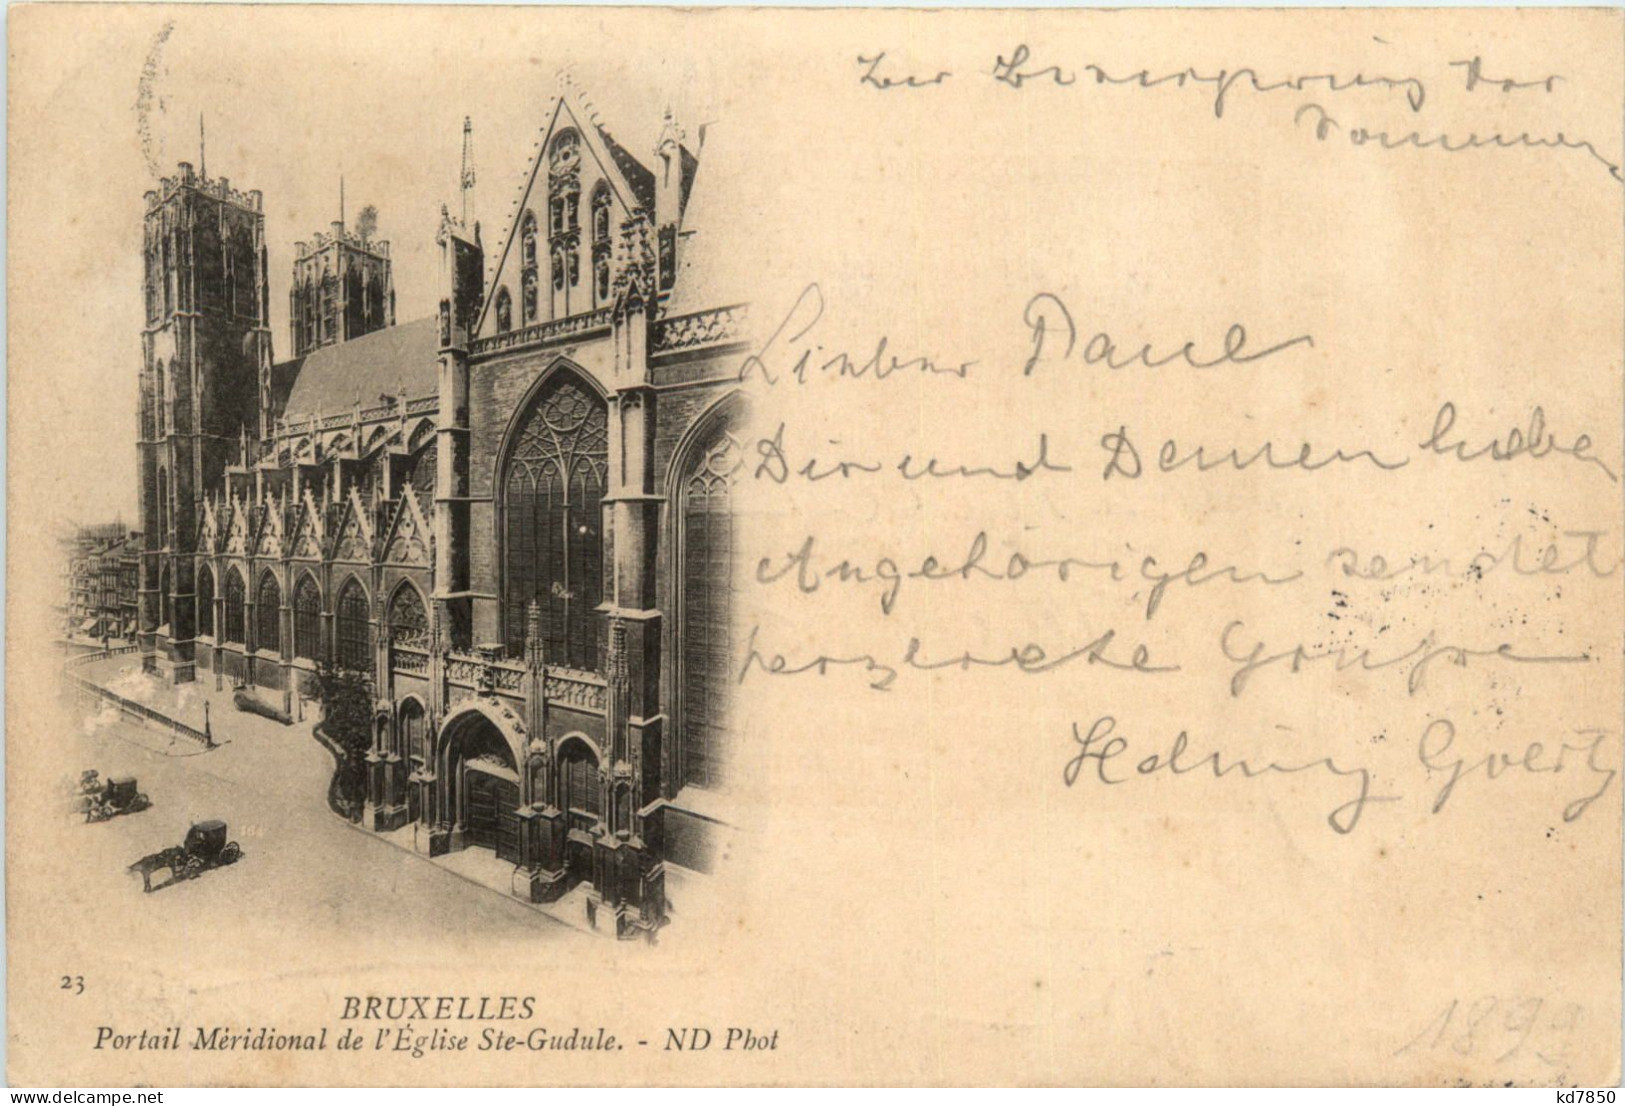 der
Sommer
Lieber Paul
Dir und Deinen lieben
Angehörigen sendet
herzlichste Grüße
Hedwig Goertz
164
23
BRUXELLES
Portail Méridional de l'Église Ste-Gudule. - ND Phot
1899
www.delcampe.net
kd7850